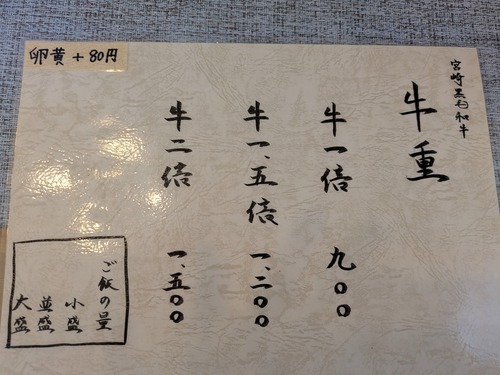 宮崎黒毛和牛
牛重
牛一倍 九〇〇
牛一、五倍 一、二〇〇
牛二倍 一、五〇〇
卵黄+80円
ご飯の量
小盛
並盛
大盛